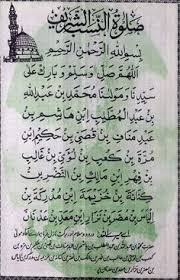 صلوة النسب الشريف
بسم الله الرحمن الرحيم
اللهم صل وسلم وبارك على
سيدنا ومولانا محمد بن عبد الله
بن عبد المطلب بن هاشم بن
عبد مناف بن قصي بن حكيم بن
مرة بن كعب بن لوي بن غالب
بن فهر ابن مالك بن النضر بن
كنانة بن خزيمة ابن مدركة بن
الياس بن مضر بن نزار ابن معد بن عدنان